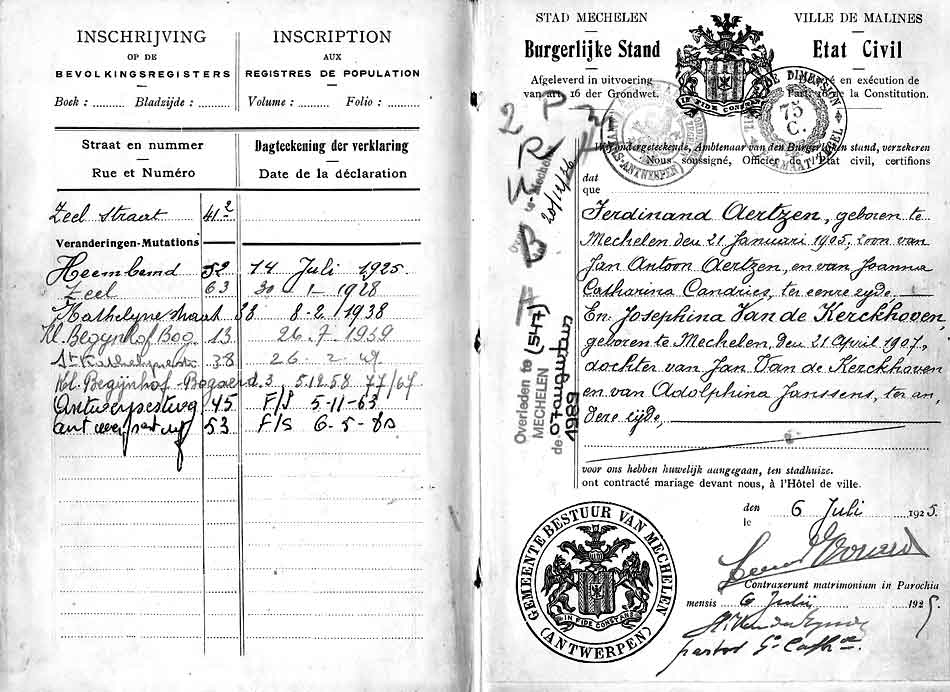 INSCHRIJVING
OP DE
BEVOLKINGSREGISTERS
Boek : Bladzijde :
INSCRIPTION
AUX
REGISTRES DE POPULATION
Volume : Folio :
Straat en nummer
Rue et Numéro
Dagteekening der verklaring
Date de la déclaration
Zeel straat 41²
Veranderingen-Mutations
Heembemd 52 14 Juli 1925
Zeel 63 30 1 1928
Kathelyne straat 38 8-2/1938
Kl. Begynhof Boo. 13 26.7.1939
38 26-2-49
Kl. Begijnhof-Bogaerd. 3 5.12.58 77/67
Antwerpsestwg 45 F/S 5-11-63
53 F/S 6-5-80
STAD MECHELEN
Burgerlijke Stand
Afgeleverd in uitvoering
van art. 16 der Grondwet.
VILLE DE MALINES
Etat Civil
en exécution de
de la Constitution.
IN FIDE CONSTANS
75
C.
20/12/66
Wij ondergeteekende, Ambtenaar van den Burgerlijken stand, verzekeren
Nous soussigné, Officier de l'Etat civil, certifions
dat
que
Ferdinand Aertzen, geboren te
Mechelen den 21 Januari 1905, zoon van
Jan Antoon Aertzen, en van Joanna
Catharina Candries, ter eenre zyde
En: Josephina Van de Kerckhoven
geboren te Mechelen, den 21 April 1907,
dochter van Jan Van de Kerckhoven
en van Adolphina Janssens, ter an,
dere zyde,
Overleden te (547)
MECHELEN
de 07 augustus
1989
voor ons hebben huwelijk aangegaan, ten stadhuize.
ont contracté mariage devant nous, à l'Hôtel de ville.
den
le
6 Juli 1925.
Contraxerunt matrimonium in Parochia
mensis 6 Julii 1925
GEMEENTEBESTUUR VAN MECHELEN
IN FIDE CONSTANS
(ANTWERPEN)